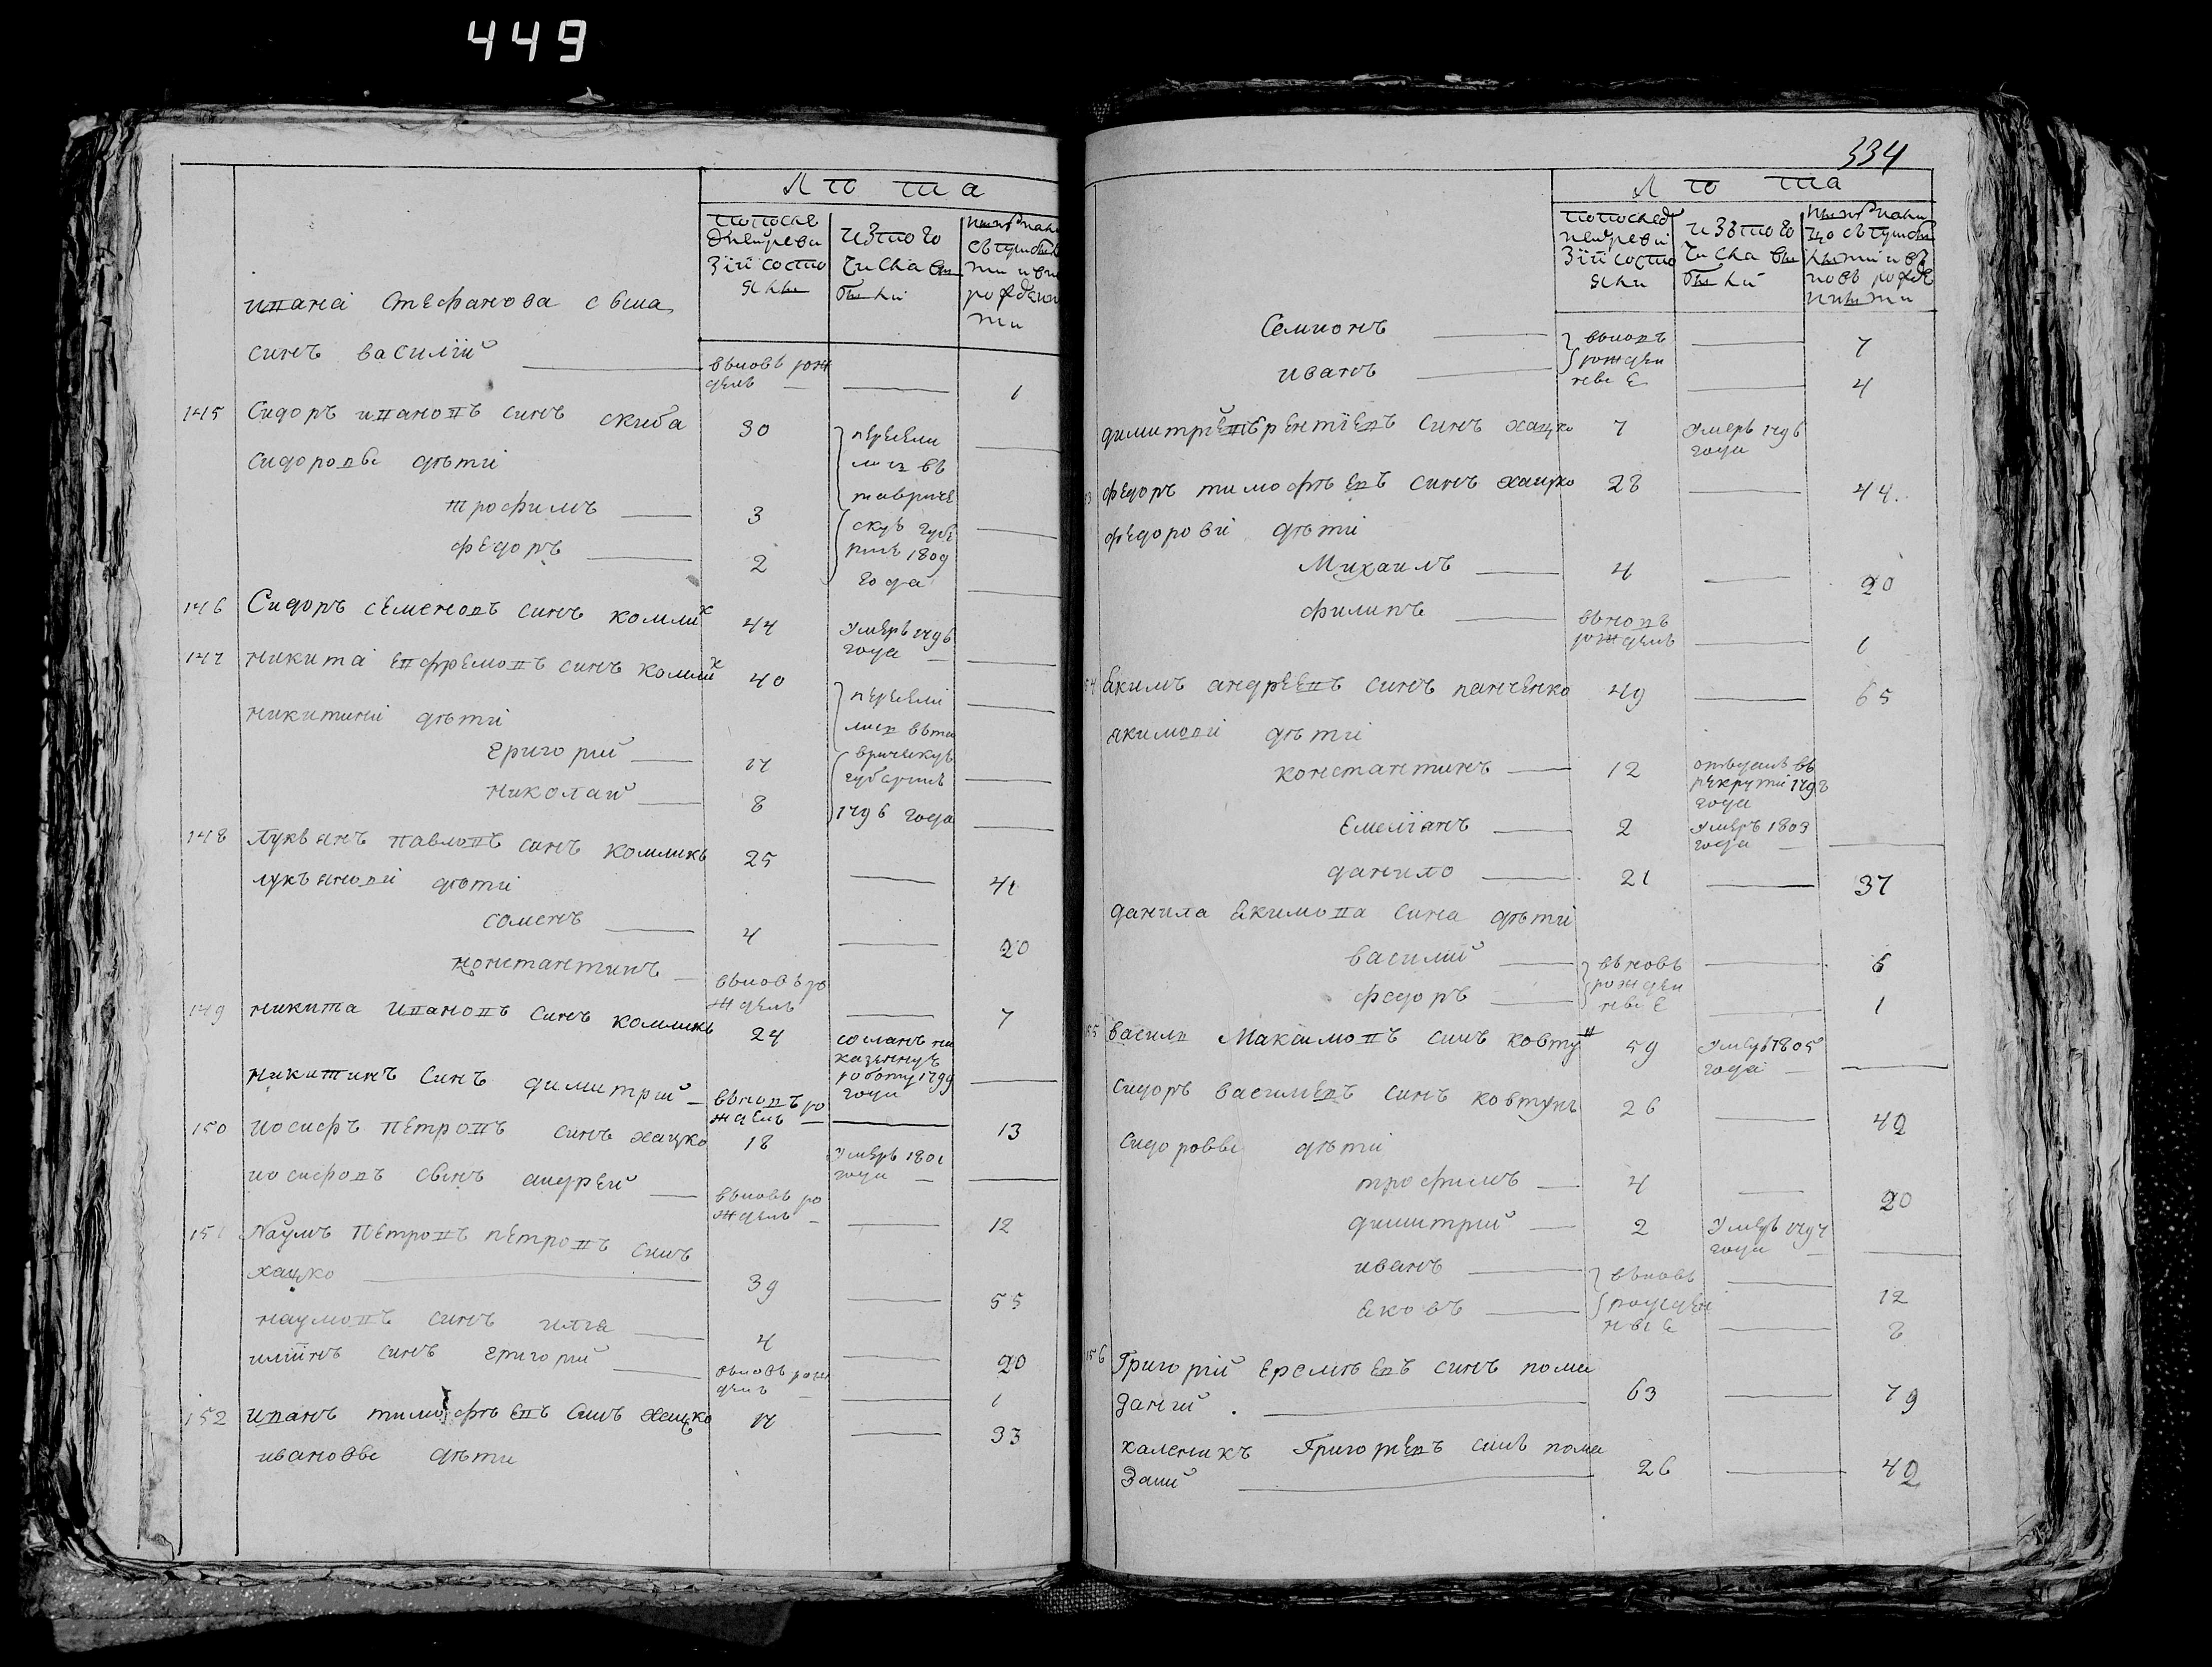 449
Лѣта
по после
дней реви
зїи состо
яли
изъ того
числа вы
были
ипана Стефанова сына
синъ василїй вьновь рож
денъ 1
145 Сидоръ ипанопъ синъ скиба 30 переели
лись въ
тавриче
скуѣ губе
рнїе 1809
года
Сидоропы дѣти
трофимъ 3
федоръ 2
146 Сидоръ семенопъ синъ комлик 44 умеръ 1796
года
147 никита епфремопъ синъ комлик 40 переелі
лись вьта
вричьскуѣ
губернїе
1796 года
никитини дѣти
григорїй 17
николай 8
148 Лукьянъ павлопъ синъ комликъ 25 41
лукьянопи дѣти
семенъ 4 20
константинъ вьновь ро
жденъ 7
149 никита ипанопъ синъ комликъ 24 сосланъ на
казьннуѣ
роботу 1799
года
никитинъ синъ димитрїй вьнопъ ро
жденъ 13
150 иосифъ петропъ синъ хацко 18 умеръ 1801
года
иосифопъ сынъ андрей вьновь ро
жденъ 12
151 Наумъ петропъ петропъ синъ
хацко 39 55
наумопъ синъ илїа 4 20
илїинъ синъ григорїй вьновь рож
денъ 1
152 ипанъ тимофѣепъ синъ хацко 17 33
ивановы дѣти
334
Лѣта
по послед
ней реви
зїи состо
яли
изъ того
числа вы
были
Семионъ вьнопъ
рожден
ные 7
иванъ 4
димитрїй синъ хацко 7 умеръ 1796
года
федоръ тимофѣепъ синъ хацко 28 44
федорови дѣти
Михаилъ 4 20
филипъ вьнопъ
рожденъ 1
54 Екимъ андреепъ синъ панченко 49 65
якимопи дѣти
константинъ 12 отъданъ въ
рекрути 1798
года
Емелїанъ 2 умеръ 1803
года
данило 21 37
данила Екимопа сина дѣти
василїй вьновь
рожден
ные 6
федоръ 1
55 василь Максимопъ синъ ковтун 59 умеръ 1805
года
Сидоръ василиепъ синъ ковтунъ 26 42
Сидоровы дѣти
трофимъ 4 20
димитрїй 2 умеръ 1797
года
иванъ вьновь
рожден
ные 12
Яковъ 8
156 Григорїй еремѣепъ синъ пома
занїй 63 79
каленикъ Григориепъ синъ пома
занїй 26 42